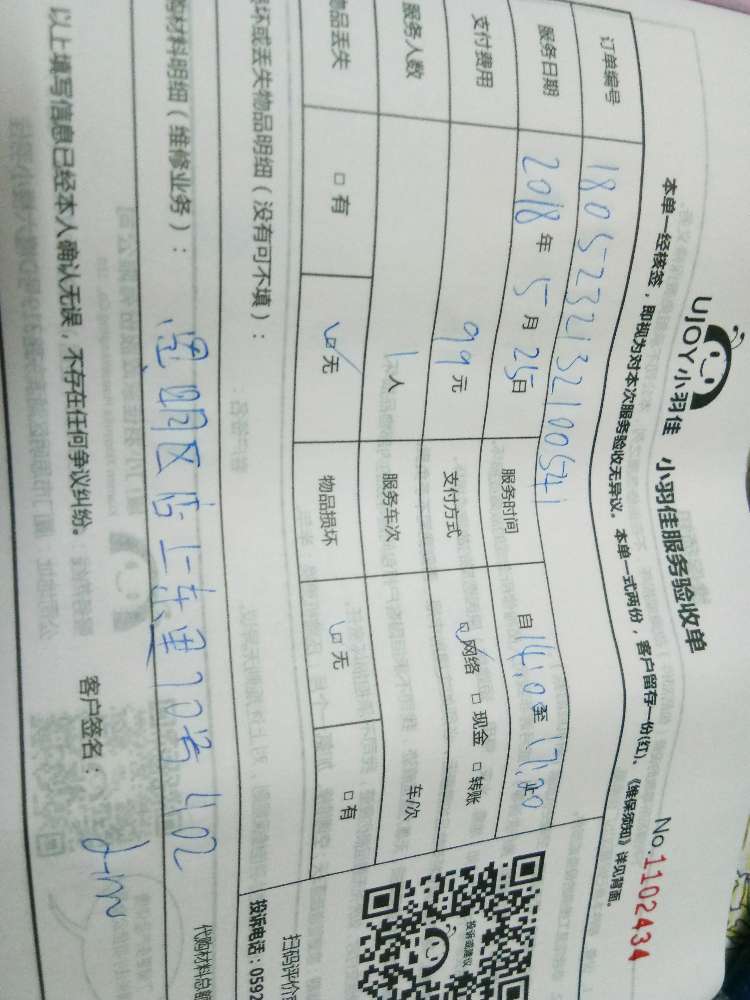 UJOY小羽佳 小羽佳服务验收单 No.1102434
本单一经核签，即视为对本次服务验收无异议。本单一式两份，客户留存一份(红)、《维保须知》详见背面。
订单编号 180523213210054
服务日期 2018年 5月 25日 服务时间 自14:0至17:20止
支付费用 99元 支付方式 网络 现金 转账
服务人数 1人 服务车次 车/次
物品丢失 有 无 物品损坏 无 有
损坏或丢失物品明细（没有可不填）：
购材料明细（维修业务）：
代购材料总额
明区 上东里70号402
以上填写信息已经本人确认无误，不存在任何争议纠纷。
客户签名：
投诉或建议
扫码评价
投诉电话：0592